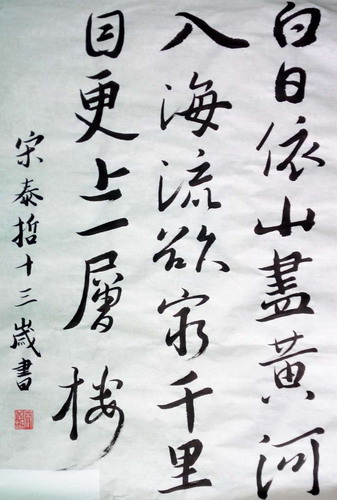 白日依山盡黃河
入海流欲窮千里
目更上一層樓
宋泰哲十三歲書